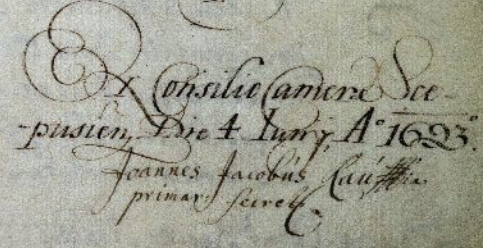 Ex Consilio Camere Sce-
pusien, Die 4 Iunij, A° 1693°.
Joannes Jacobus
primar. secret.